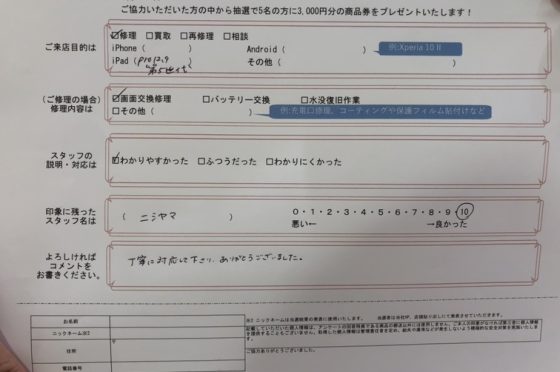 ご協力いただいた方の中から抽選で5名の方に3,000円分の商品券をプレゼントいたします！
ご来店目的は
☑修理 □買取 □再修理 □相談
iPhone（ ） Android（ ） 例:Xperia 10 II
iPad（pro12.9 第5世代） その他（ ）
（ご修理の場合）
修理内容は
☑画面交換修理 □バッテリー交換 □水没復旧作業
□その他（ ） 例:充電口修理、コーティングや保護フィルム貼付けなど
スタッフの
説明・対応は
☑わかりやすかった □ふつうだった □わかりにくかった
印象に残った
スタッフ名は
（ ニシヤマ ）
0・1・2・3・4・5・6・7・8・9・10
悪い← →良かった
よろしければ
コメントを
お書きください。
丁寧に対応して下さり、ありがとうございました。
お名前
ニックネーム※2
住所
〒
電話番号
※2 ニックネームは当選結果の発表に使用いたします。 当選者は当社HP、店頭貼り出しにて発表させていただきます。
ご協力ありがとうございました。